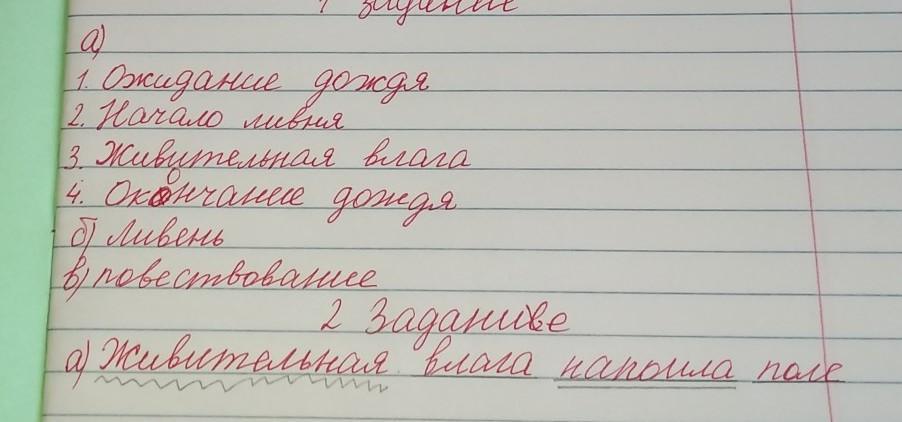 1 задание
а)
1. Ожидание дождя
2. Начало ливня
3. Живительная влага
4. Окончание дождя
б) Ливень
в) повествование
2 Задание
а) Живительная влага напоила поле